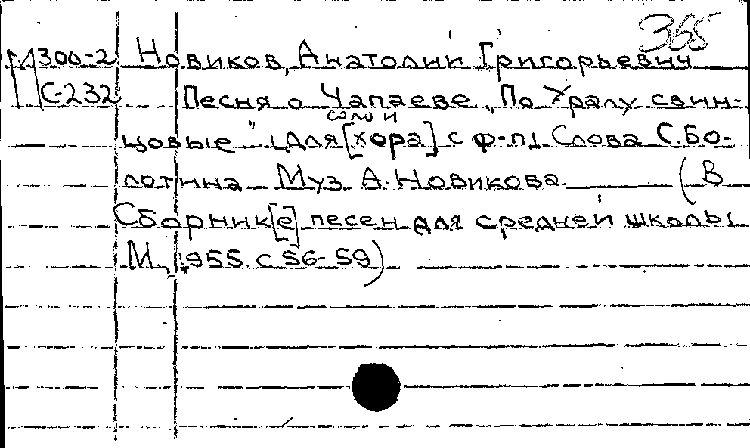 365
М300-2 Новиков, Анатолий Григорьевич
С-232 Песня о Чапаеве „По Уралу свин-
соло и
цовые" (для [хора] с ф-п) Слова С. Бо-
лотина Муз А. Новикова (В
Сборник[е] песен для средней школы
М., 1955 с 56-59)